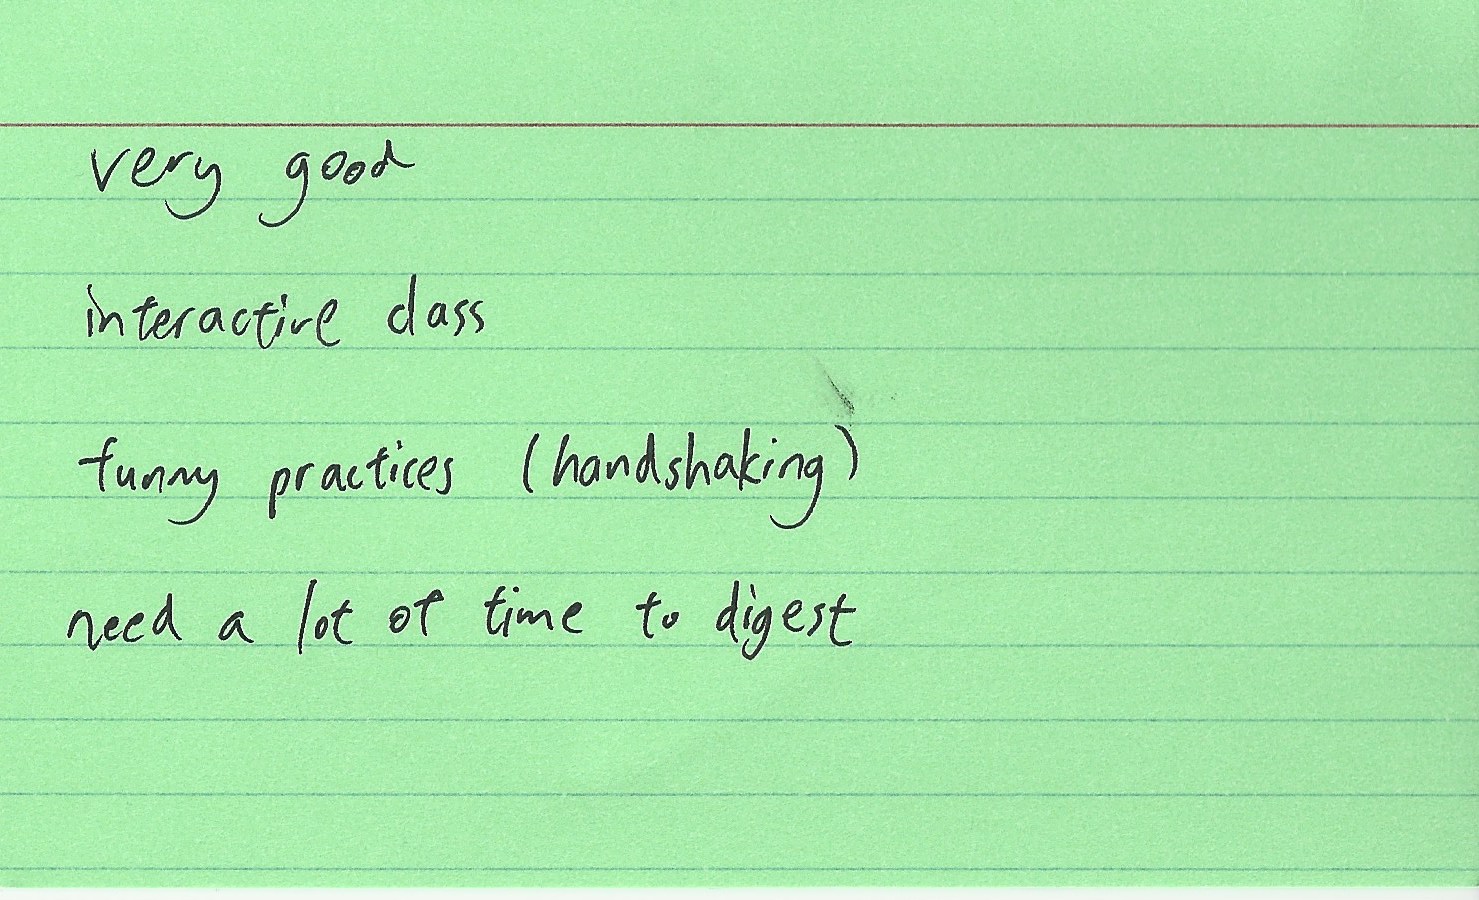 very good
interactive class
funny practices (handshaking)
need a lot of time to digest